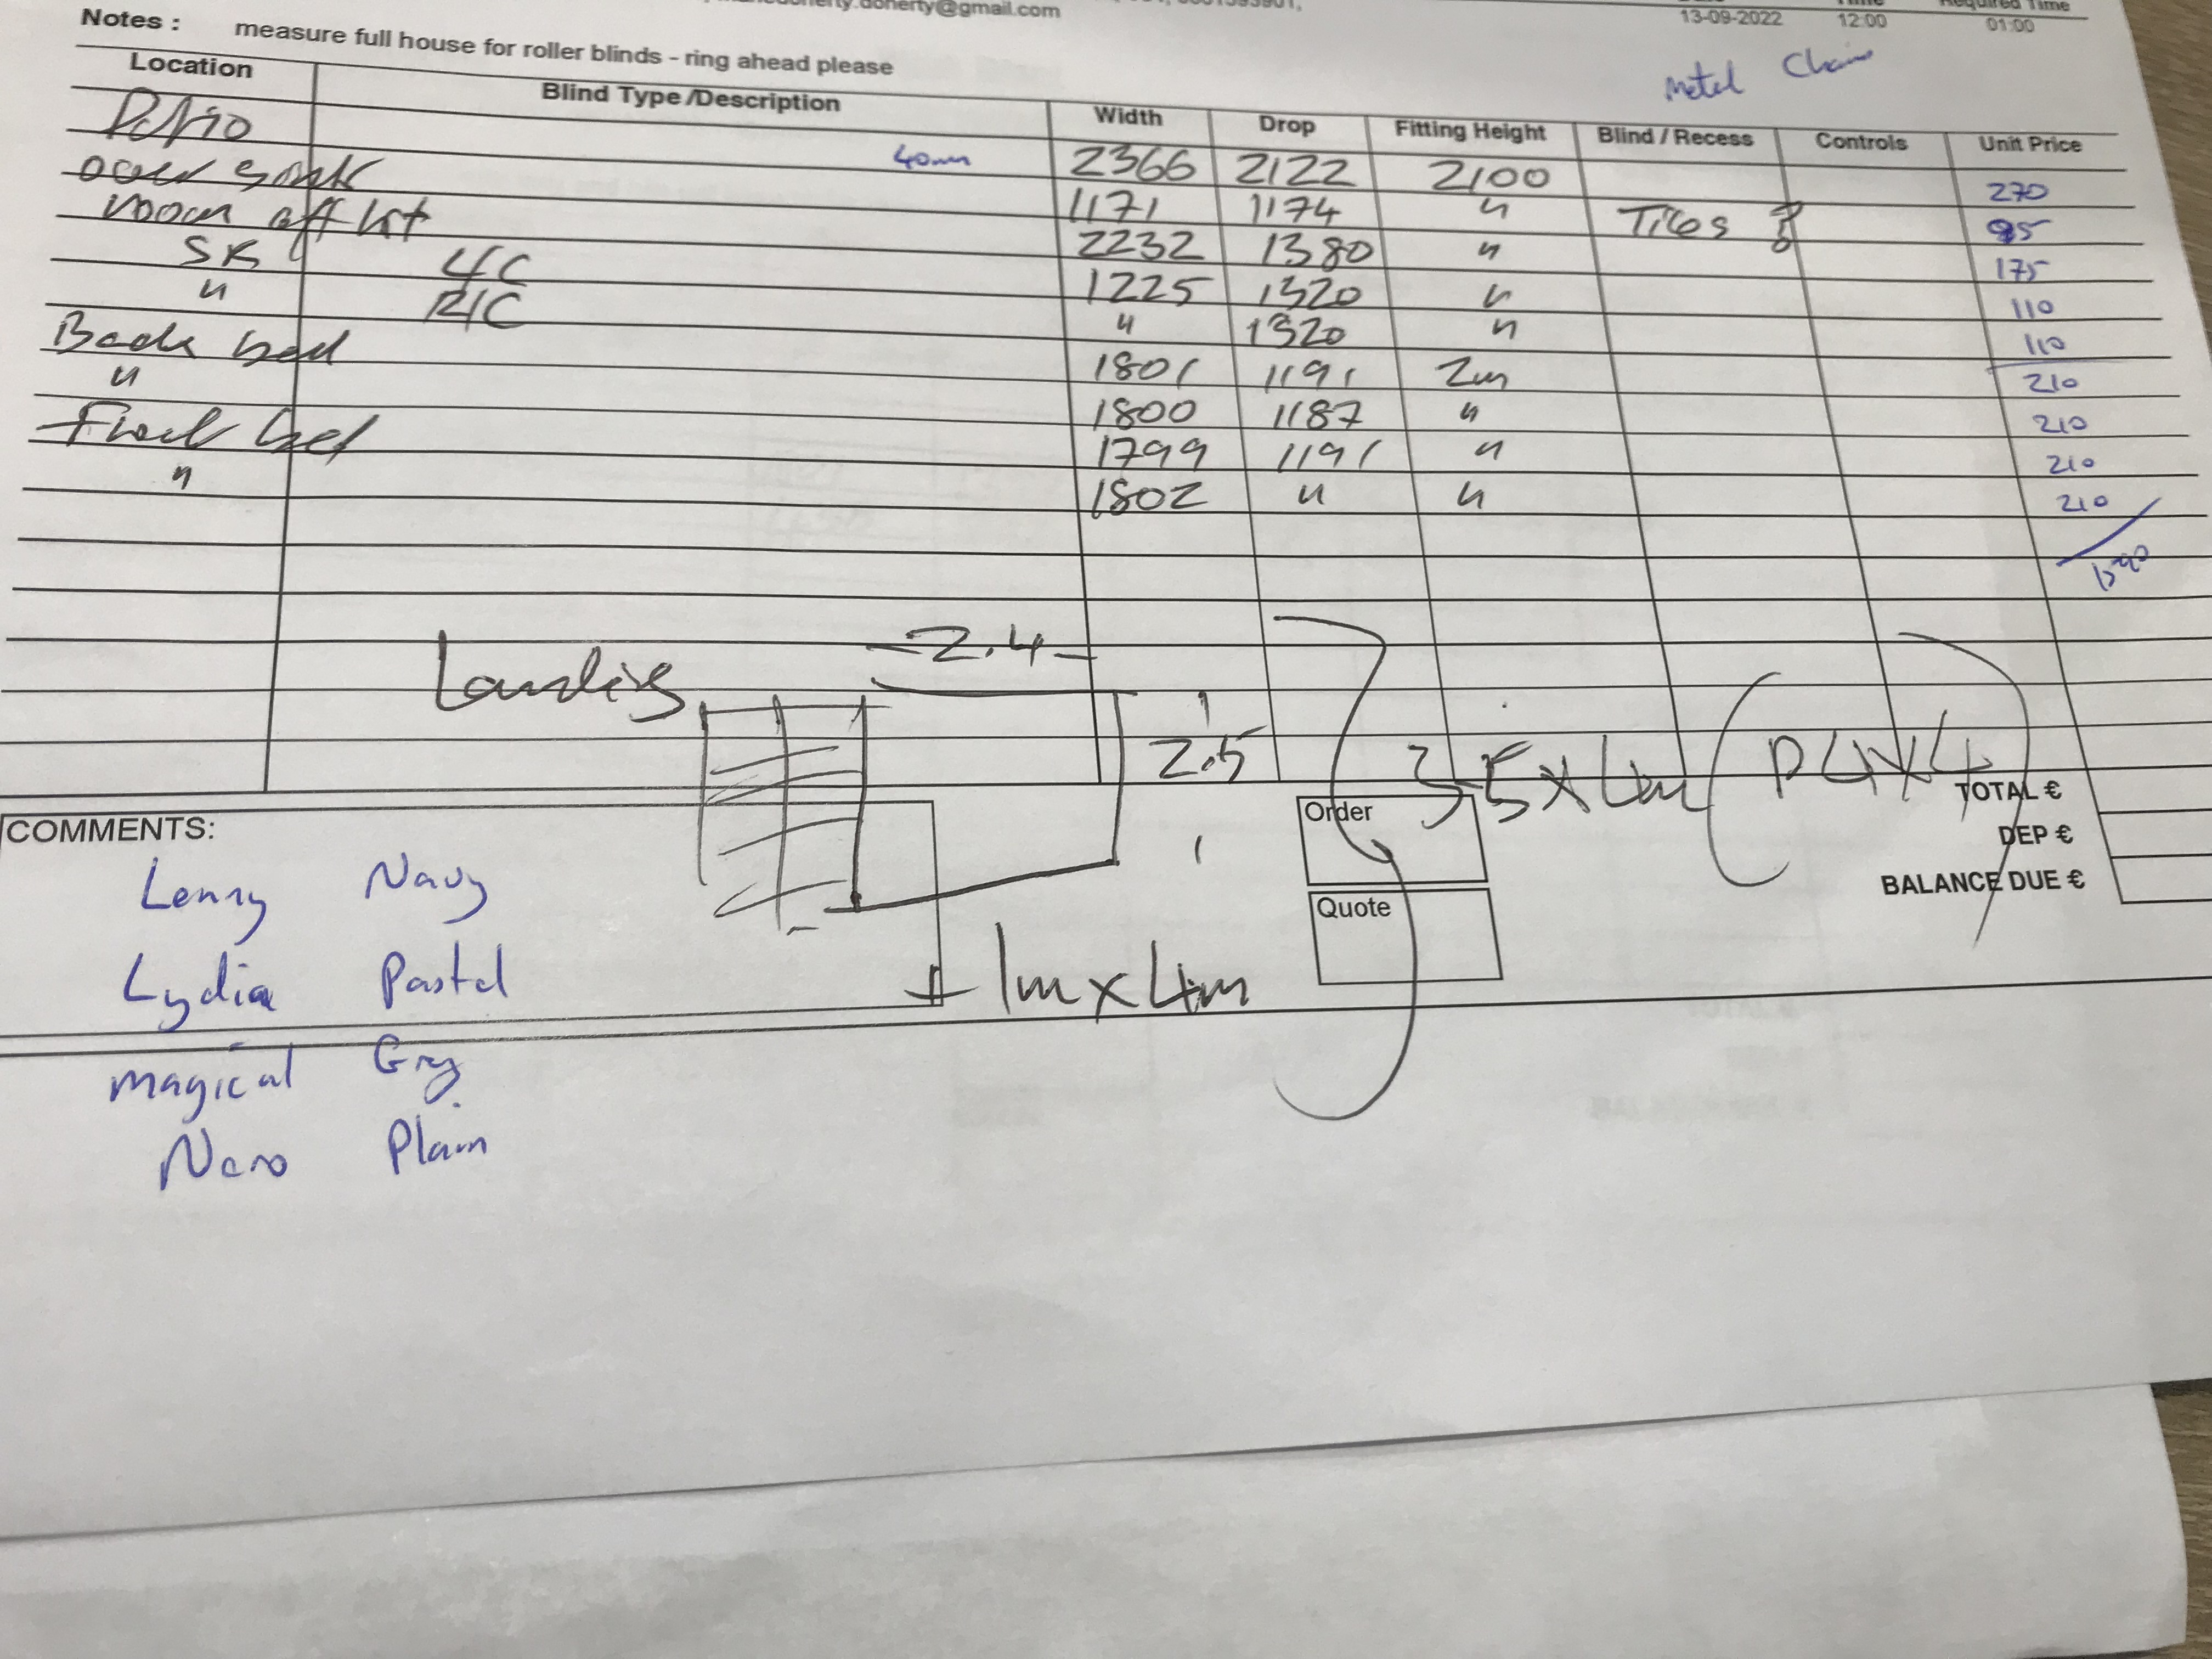 doherty@gmail.com
13-09-2022 12:00 01:00
Required Time
Notes : measure full house for roller blinds - ring ahead please
metal Chain
Location Blind Type/Description Width Drop Fitting Height Blind / Recess Controls Unit Price
Patio 40mm 2366 2122 2100 270
over sink 1171 1174 " Tiles ? 95
room off kit 2232 1380 " 175
SR L/C 1225 1320 " 110
" R/C " 1320 " 110
Back bed 1801 1191 2m 210
" 1800 1187 " 210
Front bed 1799 1191 " 210
" 1802 " " 210
Landing 2.4
2.5 3.5 x 4m (P 4x4)
TOTAL €
DEP €
BALANCE DUE €
Order
Quote
COMMENTS:
Lenny Navy
Lydia Pastel
+ 1m x 4m
magical Grey
Nero Plain